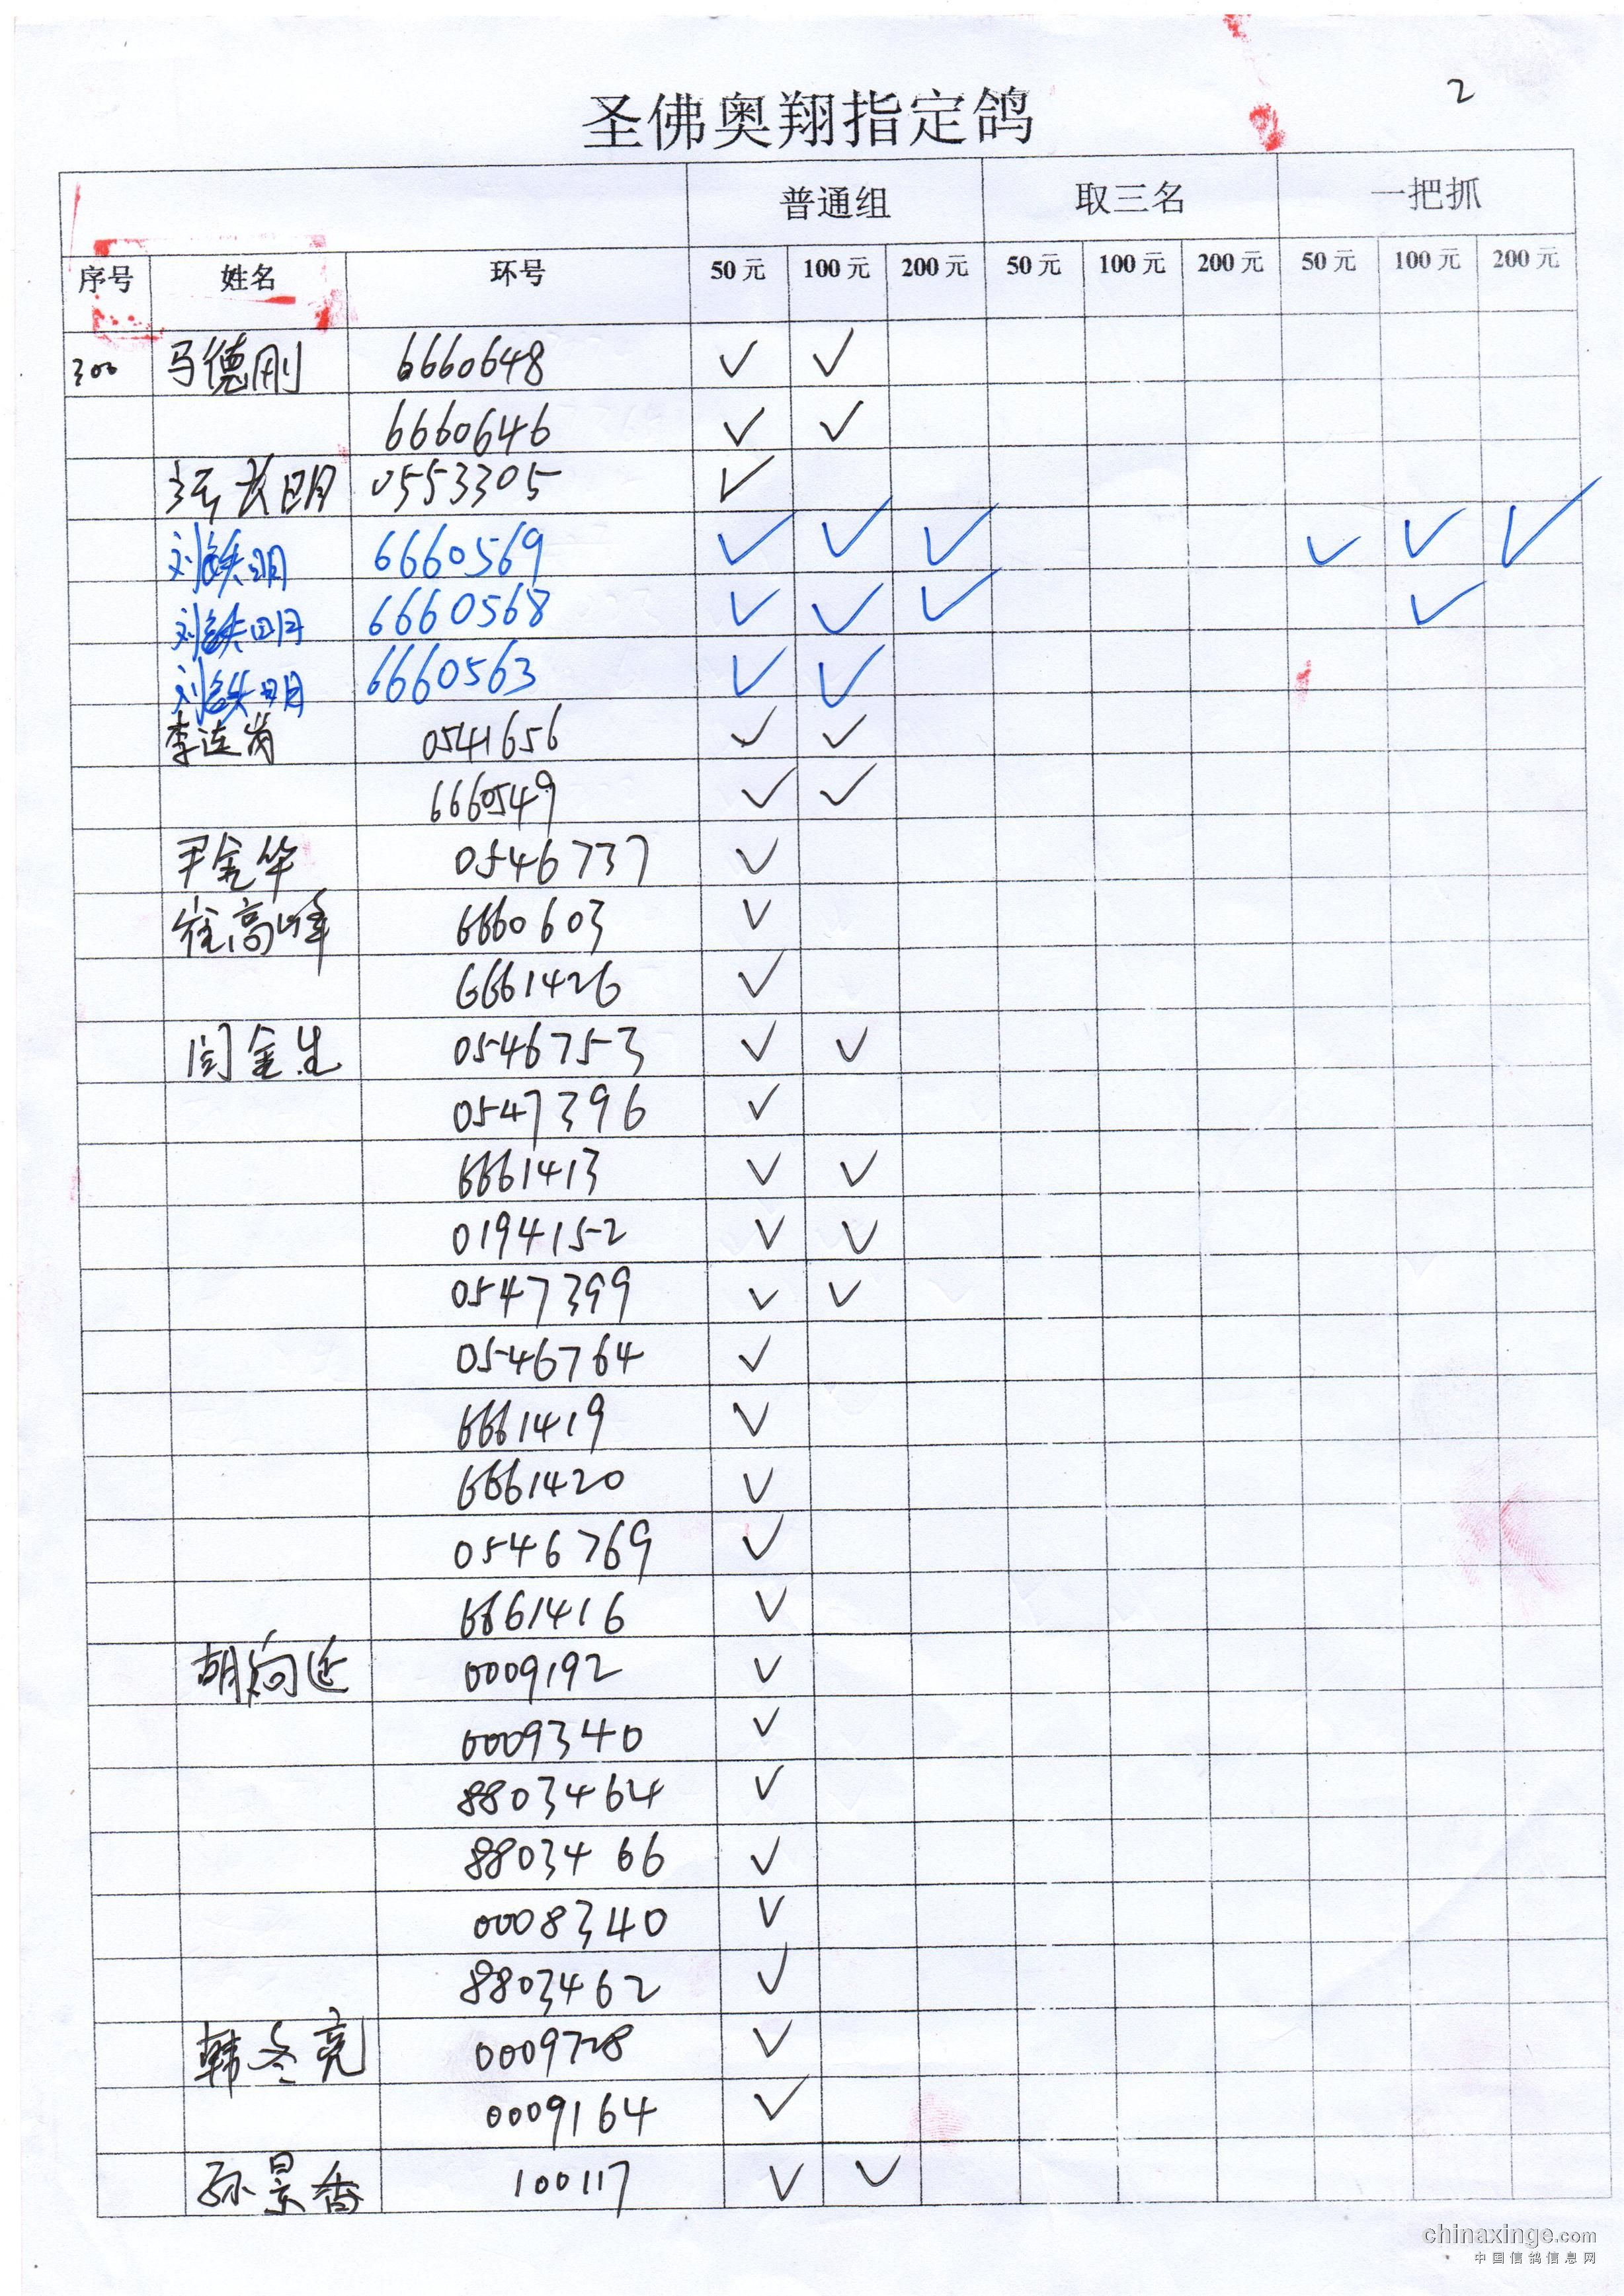 2
圣佛奥翔指定鸽
普通组 取三名 一把抓
序号 姓名 环号 50元 100元 200元 50元 100元 200元 50元 100元 200元
300 马德刚 6660648 ✓ ✓
6660646 ✓ ✓
明 0553305 ✓
刘铁明 6660569 ✓ ✓ ✓ ✓ ✓ ✓
刘铁明 6660568 ✓ ✓ ✓ ✓
刘铁明 6660563 ✓ ✓
李连岗 0541656 ✓ ✓
6660549 ✓ ✓
尹金华 0546737 ✓
崔高峰 6660603 ✓
6661426 ✓
闫金生 0546753 ✓ ✓
0547396 ✓
6661413 ✓ ✓
0194152 ✓ ✓
0547399 ✓ ✓
0546764 ✓
6661419 ✓
6661420 ✓
0546769 ✓
6661416 ✓
胡向延 0009192 ✓
0009340 ✓
8803464 ✓
8803466 ✓
0008340 ✓
8803462 ✓
韩冬亮 0009728 ✓
0009164 ✓
孙景香 100117 ✓ ✓
chinaxinge.com
中国信鸽信息网